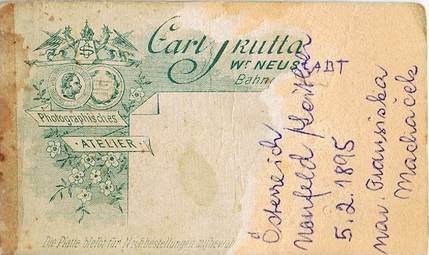 Carl Skutta
Wr NEUSTADT
Bahn
Photographisches
ATELIER
Die Platte bleibt für Nachbestellungen aufbewah
Österreich
5.2.1895
nar. Franziska
Macháček